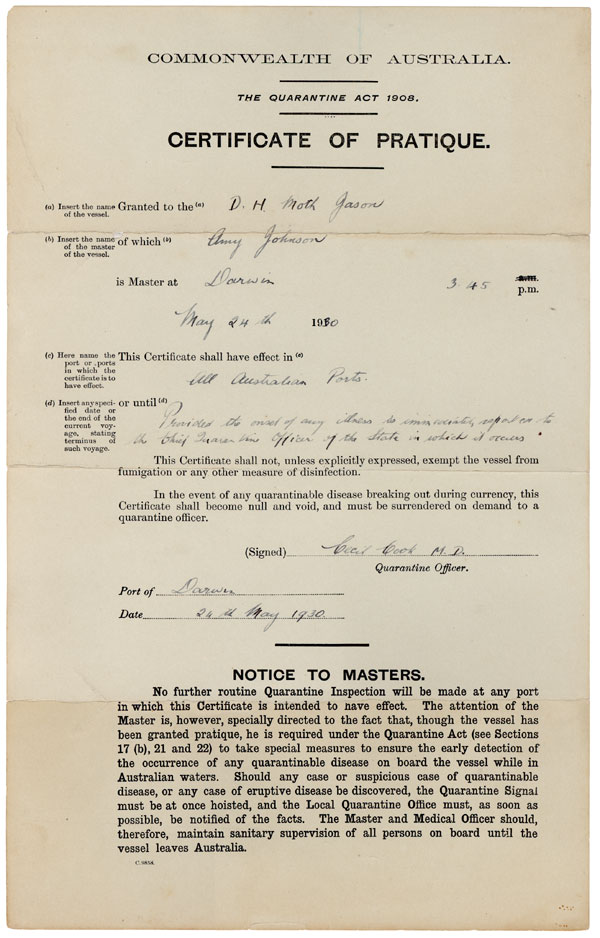 COMMONWEALTH OF AUSTRALIA.
THE QUARANTINE ACT 1908.
CERTIFICATE OF PRATIQUE.
(a) Insert the name of the vessel.
Granted to the (a) D. H. Moth Jason
(b) Insert the name of the master of the vessel.
of which (b) Amy Johnson
is Master at Darwin 3.45 a.m. p.m.
May 24th 1930
(c) Here name the port or ports in which the certificate is to have effect.
This Certificate shall have effect in (c)
All Australian Ports.
(d) Insert any specified date or the end of the current voyage, stating terminus of such voyage.
or until (d)
Provided the onset of any illness is immediately reported to
the Chief Quarantine Officer of the State in which it occurs.
This Certificate shall not, unless explicitly expressed, exempt the vessel from
fumigation or any other measure of disinfection.
In the event of any quarantinable disease breaking out during currency, this
Certificate shall become null and void, and must be surrendered on demand to a
quarantine officer.
(Signed) Cecil Cook M.D.
Quarantine Officer.
Port of Darwin
Date 24th May 1930.
NOTICE TO MASTERS.
No further routine Quarantine Inspection will be made at any port
in which this Certificate is intended to have effect. The attention of the
Master is, however, specially directed to the fact that, though the vessel has
been granted pratique, he is required under the Quarantine Act (see Sections
17 (b), 21 and 22) to take special measures to ensure the early detection of
the occurrence of any quarantinable disease on board the vessel while in
Australian waters. Should any case or suspicious case of quarantinable
disease, or any case of eruptive disease be discovered, the Quarantine Signal
must be at once hoisted, and the Local Quarantine Office must, as soon as
possible, be notified of the facts. The Master and Medical Officer should,
therefore, maintain sanitary supervision of all persons on board until the
vessel leaves Australia.
C.9858.